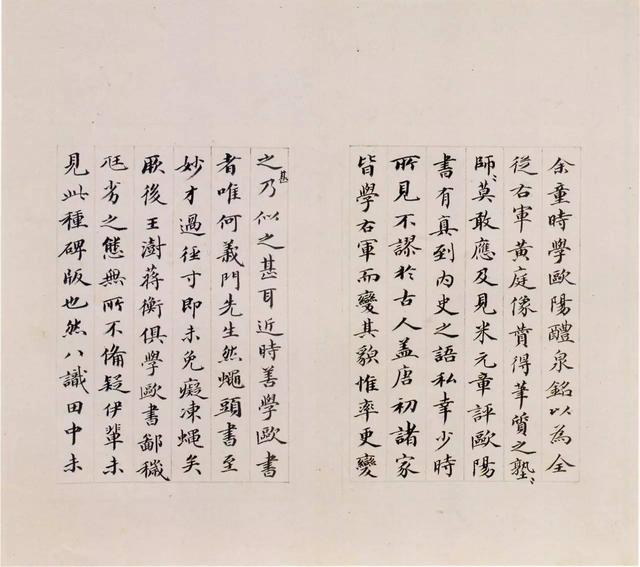 余童時學歐陽醴泉銘以為全
從右軍黃庭像贊得筆質之塾〻
師〻莫敢應及見米元章評歐陽
書有真到內史之語私幸少時
所見不謬於古人盖唐初諸家
皆學右軍而變其貌惟率更變
之甚乃似之甚耳近時善學歐書
者唯何義門先生然蠅頭書至
妙才過徑寸即未免癡凍蠅矣
厥後王澍蔣衡俱學歐書鄙穢
尫劣之態無所不俻疑伊輩未
見此種碑版也然八識田中未